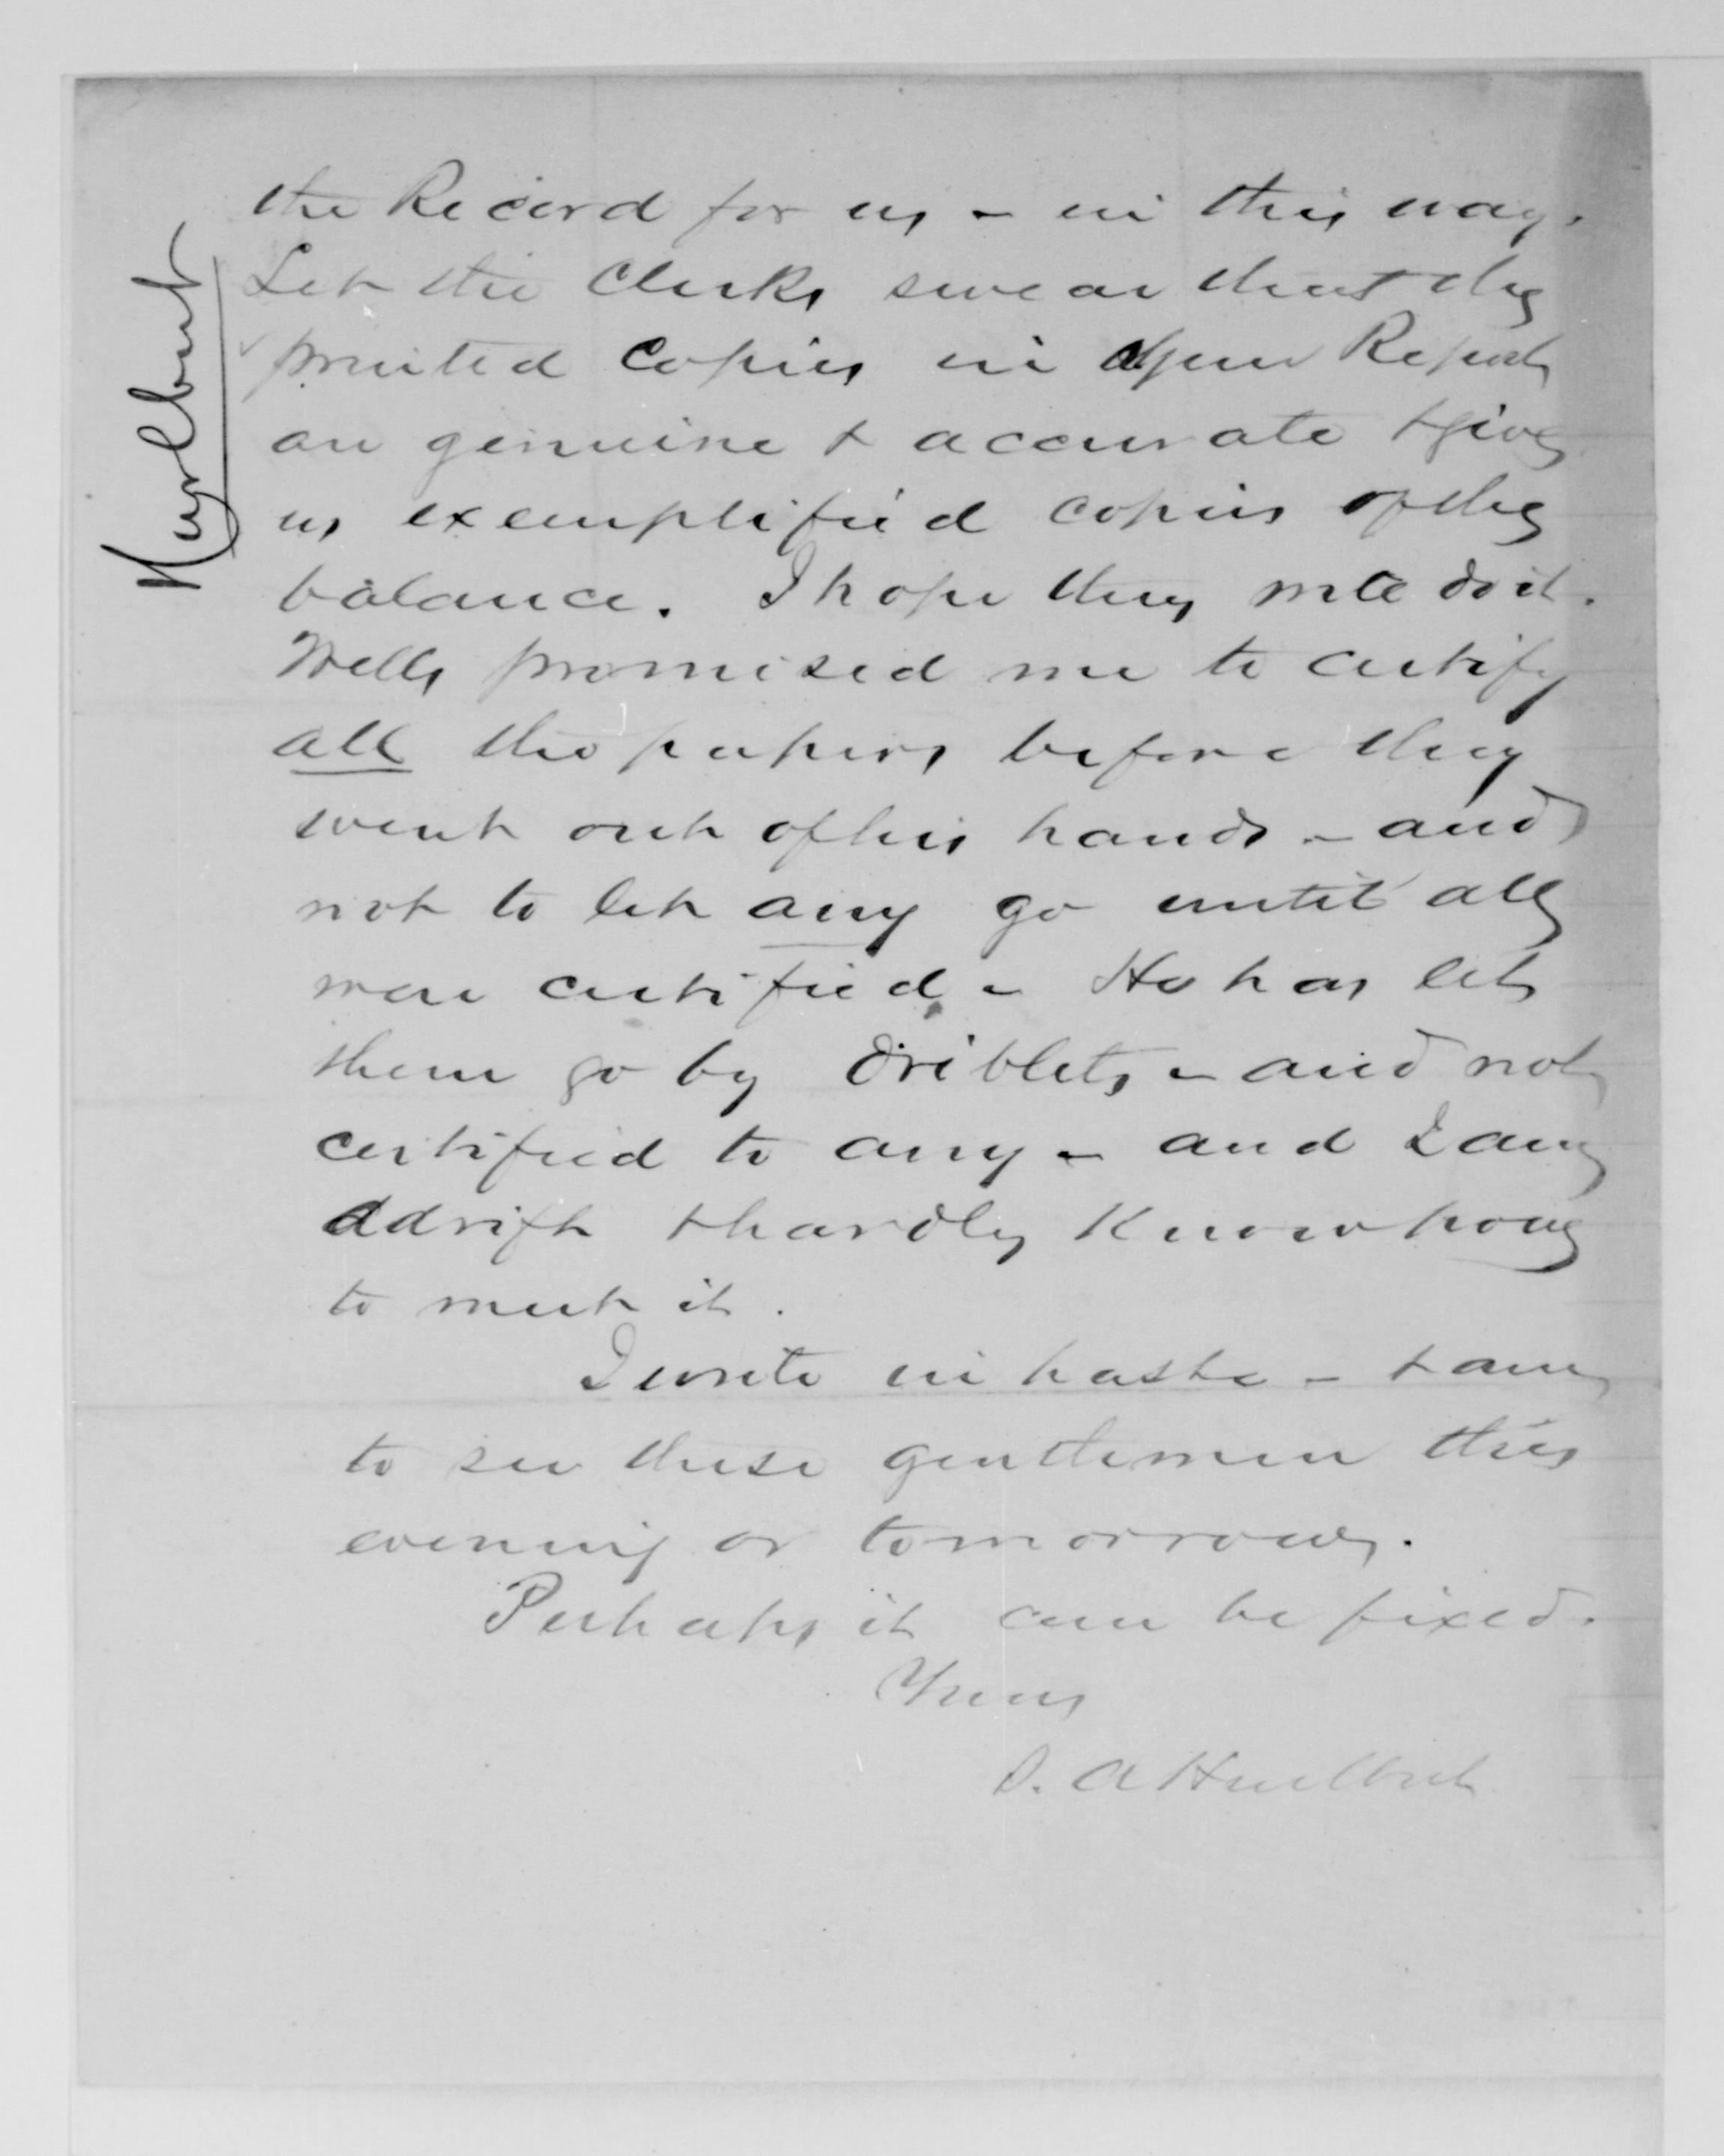 Hurlbut
the Record for us - in this way.
Let the Clerks swear that the
printed copies in your Report
are genuine & accurate & give
us exemplified copies of the
balance. I hope they will do it.
Wells promised me to certify
all the papers before they
went out of his hands - and
not to let any go until all
were certified - He has let
them go by driblets - and not
certified to any - and I am
adrift & hardly know how
to meet it.
I write in haste - & am
to see these gentlemen this
evening or tomorrow.
Perhaps it can be fixed.
Yours
S. A Hurlbut